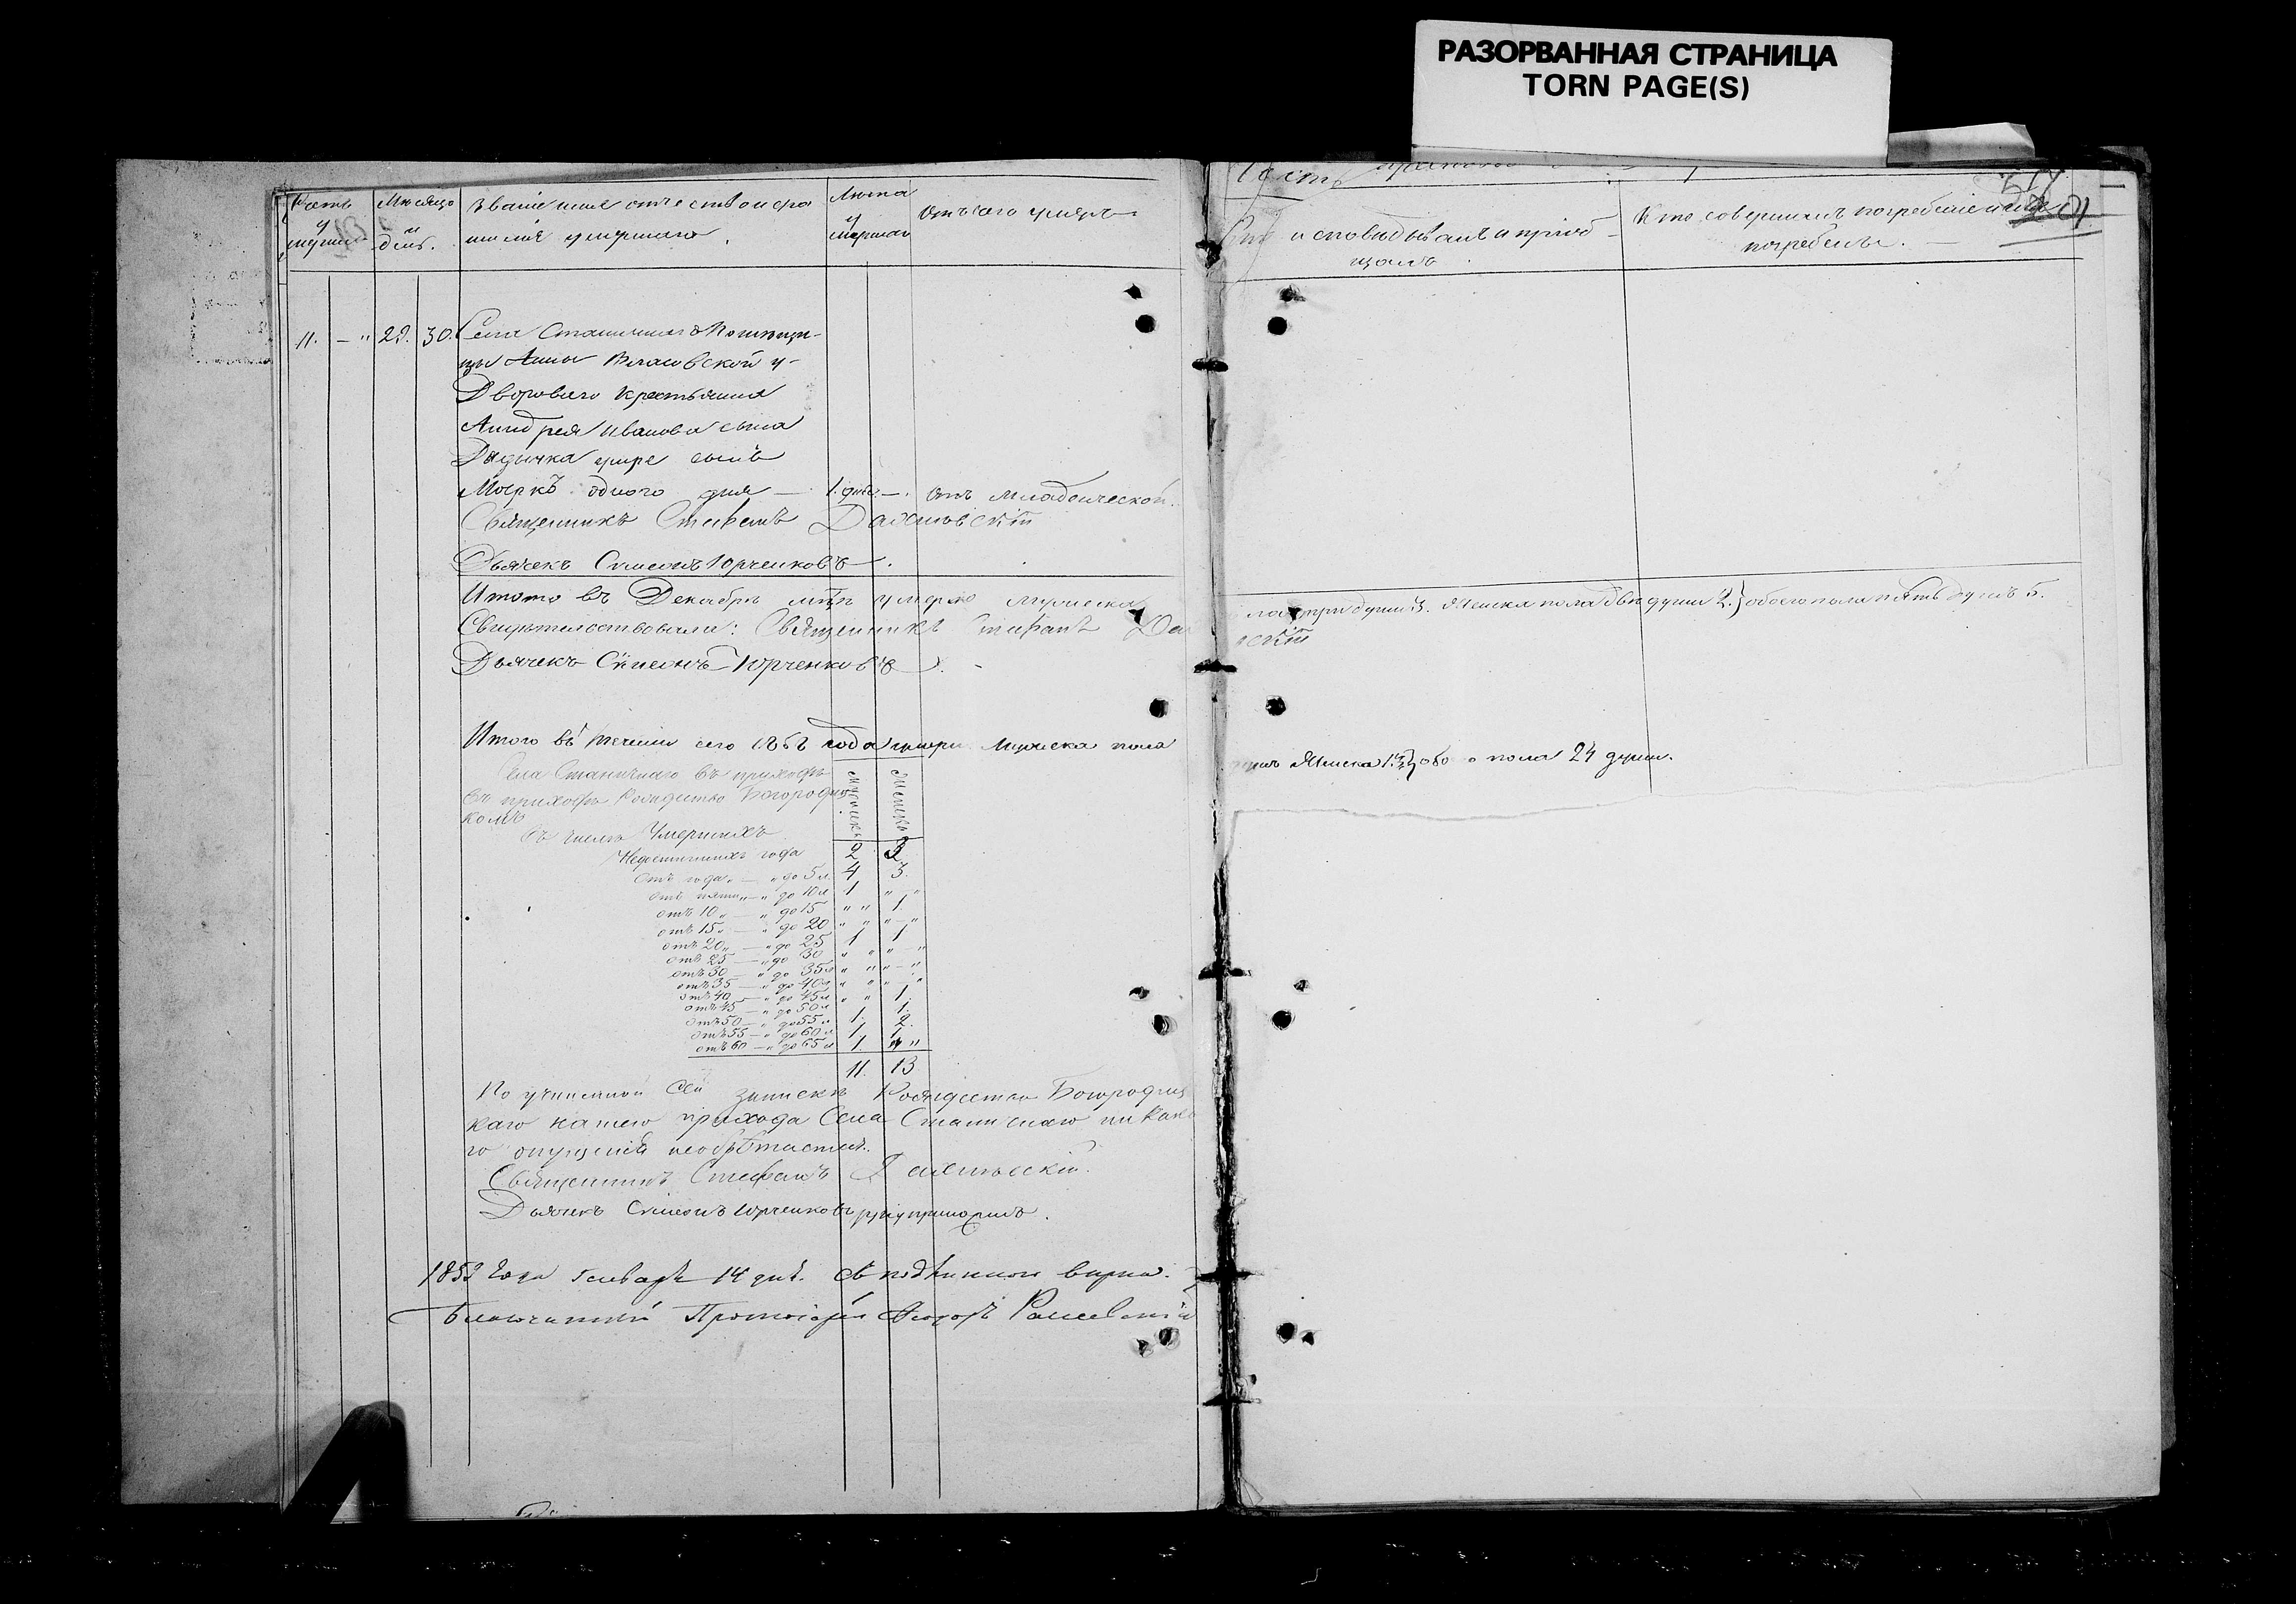 РАЗОРВАННАЯ СТРАНИЦА
TORN PAGE(S)
Мѣсяцъ и день.
Званіе имя отчество и фамилія умершаго.
Лѣта умершаго
Отъ чего умеръ
исповѣдывалъ и пріобщалъ
Кто совершалъ погребеніе и гдѣ погребены.
11. — " 29. 30. Села Станичнаго Помѣщи-
цы Анны Власовской у-
Двороваго крестьянина
Андрея Иванова сына
умре сынъ
Маркъ одного дня — 1. дня — отъ младенческой.
Священникъ Стефанъ
Дьячекъ Симеонъ Юрченковъ.
Итого въ Декабрѣ мцѣ умерло мужеска
пола три души 3. Женска пола двѣ души 2. } обоего пола пять душъ 5.
Свидѣтельствовали: Священникъ Стефанъ
Дьячекъ Симеонъ Юрченковъ
Итого въ теченіи сего года умерло Мужеска пола
Женска обо о пола 24 души.
Села Станичнаго въ приходѣ
въ приходѣ Рождество Богородич
комъ
Въ числѣ Умершихъ
Недостигшихъ года 2 3
отъ года " — " до 5 л. 4 3.
отъ пяти " — " до 10 л 1 " "
отъ 10 " — " до 15 " " 1
отъ 15 " — " до 20 " " " — "
отъ 20 " — " до 25 1 1
отъ 25 — " до 30 " " " — "
отъ 30 — " до 35 л " " " — "
отъ 35 — " до 40 л " " " "
отъ 40 — " до 45 л " " 1.
отъ 45 — " до 50 л 1.
отъ 50 — " до 55 л 1. 2.
отъ 55 — " до 60 л 1. 1.
отъ 60 — " до 65 л 1. " "
11. 13
По учиненной сей запискѣ Рождество Богородиц
каго нашего прихода Села Станичнаго никако
го опущенія необрѣтается.
Священникъ Стефанъ
Дьячекъ Симеонъ Юрченковъ руку приложилъ.
Генваря 14 дня. Съ подлиннымъ вѣрно.
Благочинный Протоіерей Ѳеодоръ